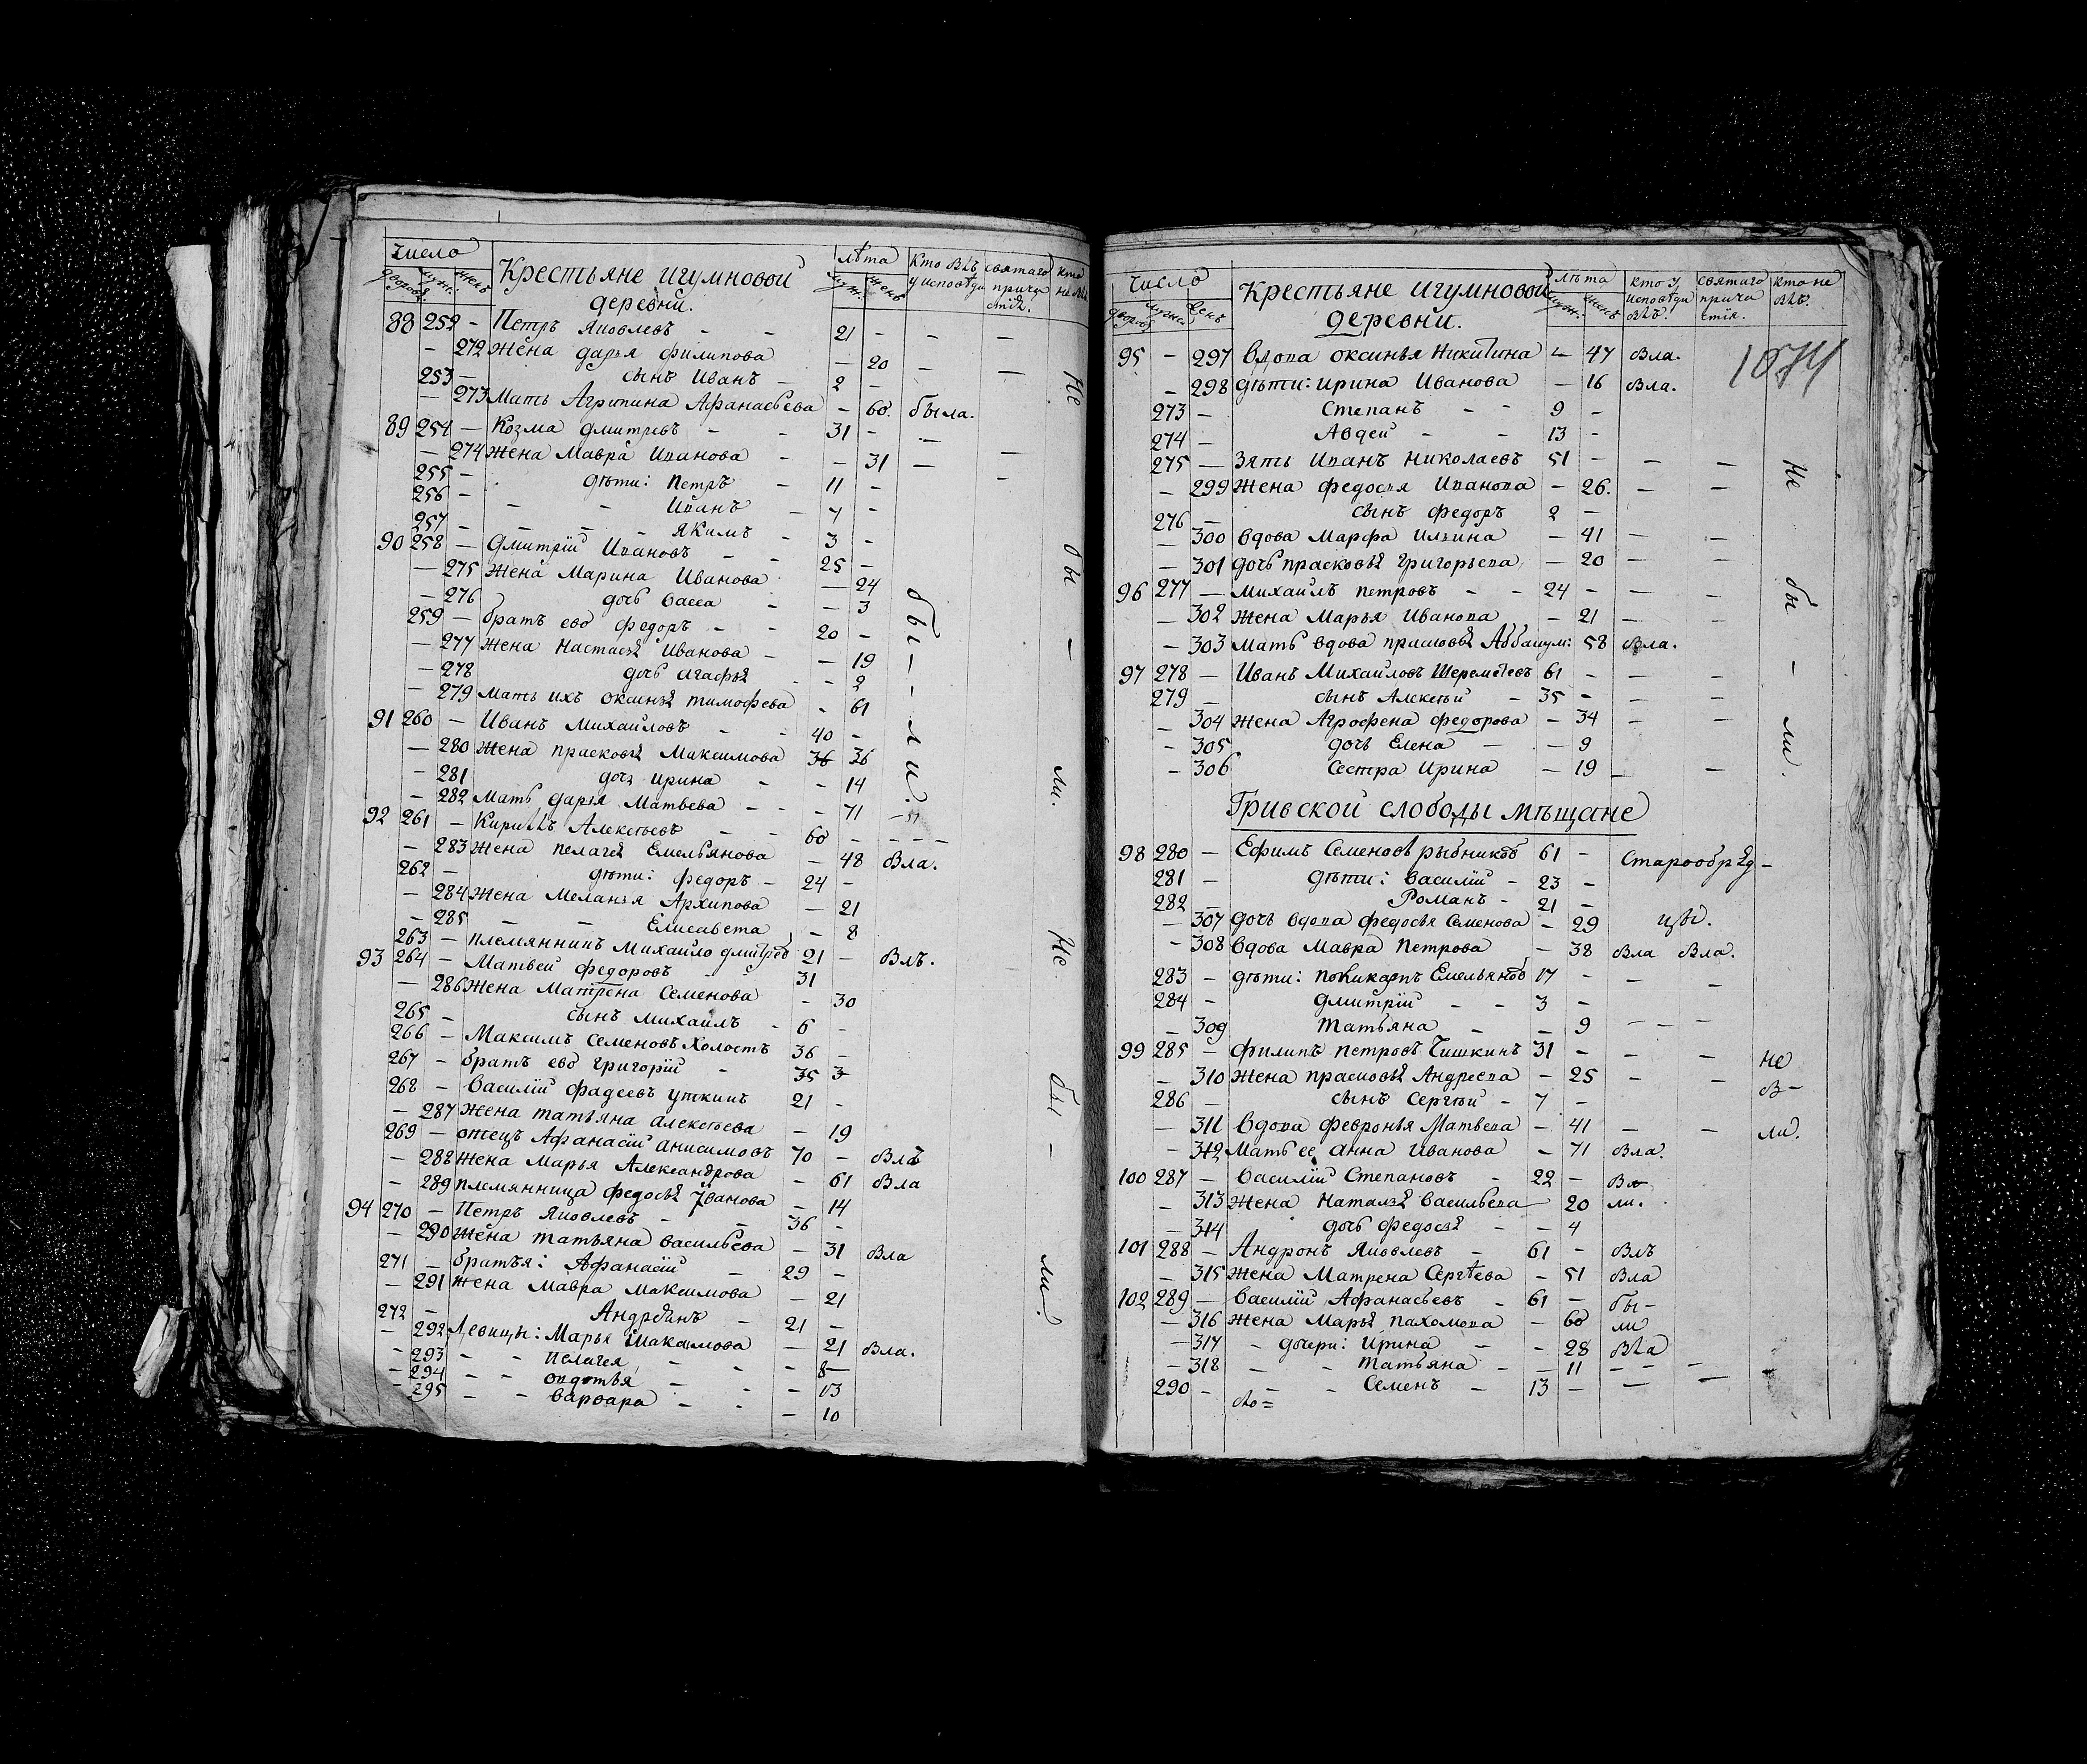 Число Крестьяне игумновой лѣта кто былъ святаго кто
дворовъ муж. женъ деревни. муж. женъ у исповѣди прича стія. не
88 252 - Петръ Яковлевъ - - 21 - - -
- 272 Жена дарья филипова - 20 - -
253 - сынъ Иванъ - 2 -
- 273 Мать Агрипина Афанасьева - 60. была.
89 254 - Козма дмитревъ - - 31 - -
- 274 Жена Мавра Иванова - - 31 - -
255 - дѣти: Петръ - 11 - -
256 - - - Иванъ - 7 -
257 - - - - Якимъ - 3 -
90 258 - Дмитрій Ивановъ - - 25 -
- 275 Жена Марина Иванова - 24
- 276 дочь Васса - - 3
259 - братъ ево федоръ - - 20 -
- 277 Жена Настасья Иванова - - 19
- 278 дочь агафья - 2
- 279 Мать ихъ Оксинья тимофева - 61
91 260 - Иванъ Михайловъ - - 40 -
- 280 Жена прасковья Максимова 36 36
- 281 дочь ирина - - 14
- 282 Мать дарья Матвева - - - 71
бы - - ли.
92 261 - Кирилъ Алексѣевъ - - 60 - - - -
- 283 Жена пелагея Емельянова - 48 Бла.
262 - дѣти: федоръ - 24 -
- 284 Жена Меланья Архипова - 21
- 285 - - Елисавета - 8
263 - племянникъ Михайло дмитрев 21 - Былъ.
93 264 - Матвей федоровъ - - 31
- 286 Жена Матрена Семенова - 30
265 - сынъ михаилъ - 6 -
266 - Максимъ Семеновъ Холостъ 36 -
267 - братъ ево григорій - 35 3
268 - Василій фадеевъ уткинъ 21 -
- 287 Жена татьяна алексѣева - 19
269 - отецъ Афанасій анисимовъ 70 - Блъ
- 288 Жена Марья Александрова - 61 Бла
- 289 племянница федосья Иванова - 14
94 270 - Петръ Яковлевъ - - 36 -
- 290 Жена татьяна васильева - 31 Бла
271 - братья: Афанасій - 29 -
- 291 Жена Мавра максимова - 21
272 - Андреянъ - 21 -
- 292 Девицы: Марья Максимова - 21 Бла.
- 293 - - пелагея - - - 8
- 294 - - овдотья - - - 13
- 295 - - варвара - - - 10
Не бы - ли.
Не бы - ли.
Число Крестьяне игумновой лѣта кто у святаго кто не
дворовъ мужес женъ деревни. муж. женъ исповѣди былъ. прича стія. былъ.
1074
95 - 297 Вдова оксинья Никитина - 47 Бла.
- 298 дѣти: ирина Иванова - 16 Бла.
273 - Степанъ - - 9 -
274 - Авдей - - 13 -
275 - Зять Иванъ Николаевъ 51 - - -
- 299 Жена федосья Иванова - 26. - -
276 - сынъ федоръ 2 -
- 300 вдова Марфа Ильина - 41 - -
- 301 дочь прасковья григорьева - 20 - -
96 277 - Михаилъ петровъ - - 24 - - -
- 302 Жена Марья Иванова - 21 - -
- 303 Мать вдова прасковья Аввакум: 58 Бла.
97 278 - Иванъ Михайловъ Шереметевъ 61 - - -
279 - сынъ Алексѣй - 35 - - -
- 304 Жена Агрофена федорова - 34 - -
- 305 дочь Елена - - 9
- 306 Сестра Ирина - 19 - -
Не бы - ли.
Гривской слободы мѣщане
98 280 - Ефимъ Семеновъ рыбников 61 - Старообряд-
281 - дѣти: Василій - 23 -
282 - Романъ - 21 -
- 307 дочь вдова федосья Семенова - 29 цы.
- 308 вдова Мавра Петрова - 38 Бла Бла.
283 - дѣти: поликарпъ Емельянов 17 - - -
284 - дмитрій - - 3 -
- 309 татьяна - - 9 - - -
99 285 - филипъ петровъ Чишкинъ 31 - - - не
- 310 Жена прасковья Андреева - 25 - - б-
286 - сынъ Сергѣй - 7 -
- 311 Вдова февронья Матвева - 41 - - ли.
- 312 Мать ее анна Иванова - 71 Бла.
100 287 - Василій Степановъ - 22 - Бы-
- 313 Жена Наталья Васильева - 20 ли.
- 314 дочь федосья - - 4
101 288 - Андронъ Яковлевъ - 61 - Блъ
- 315 Жена Матрена Сергѣева - 51 Бла
102 289 - Василій Афанасьевъ - 61 - бы-
- 316 Жена Марья пахомова - 60 ли
- 317 - дочери: Ирина - - 28 Бла
- 318 - - Татьяна - - 11 - - -
290 - - - Семенъ - 13 - - -